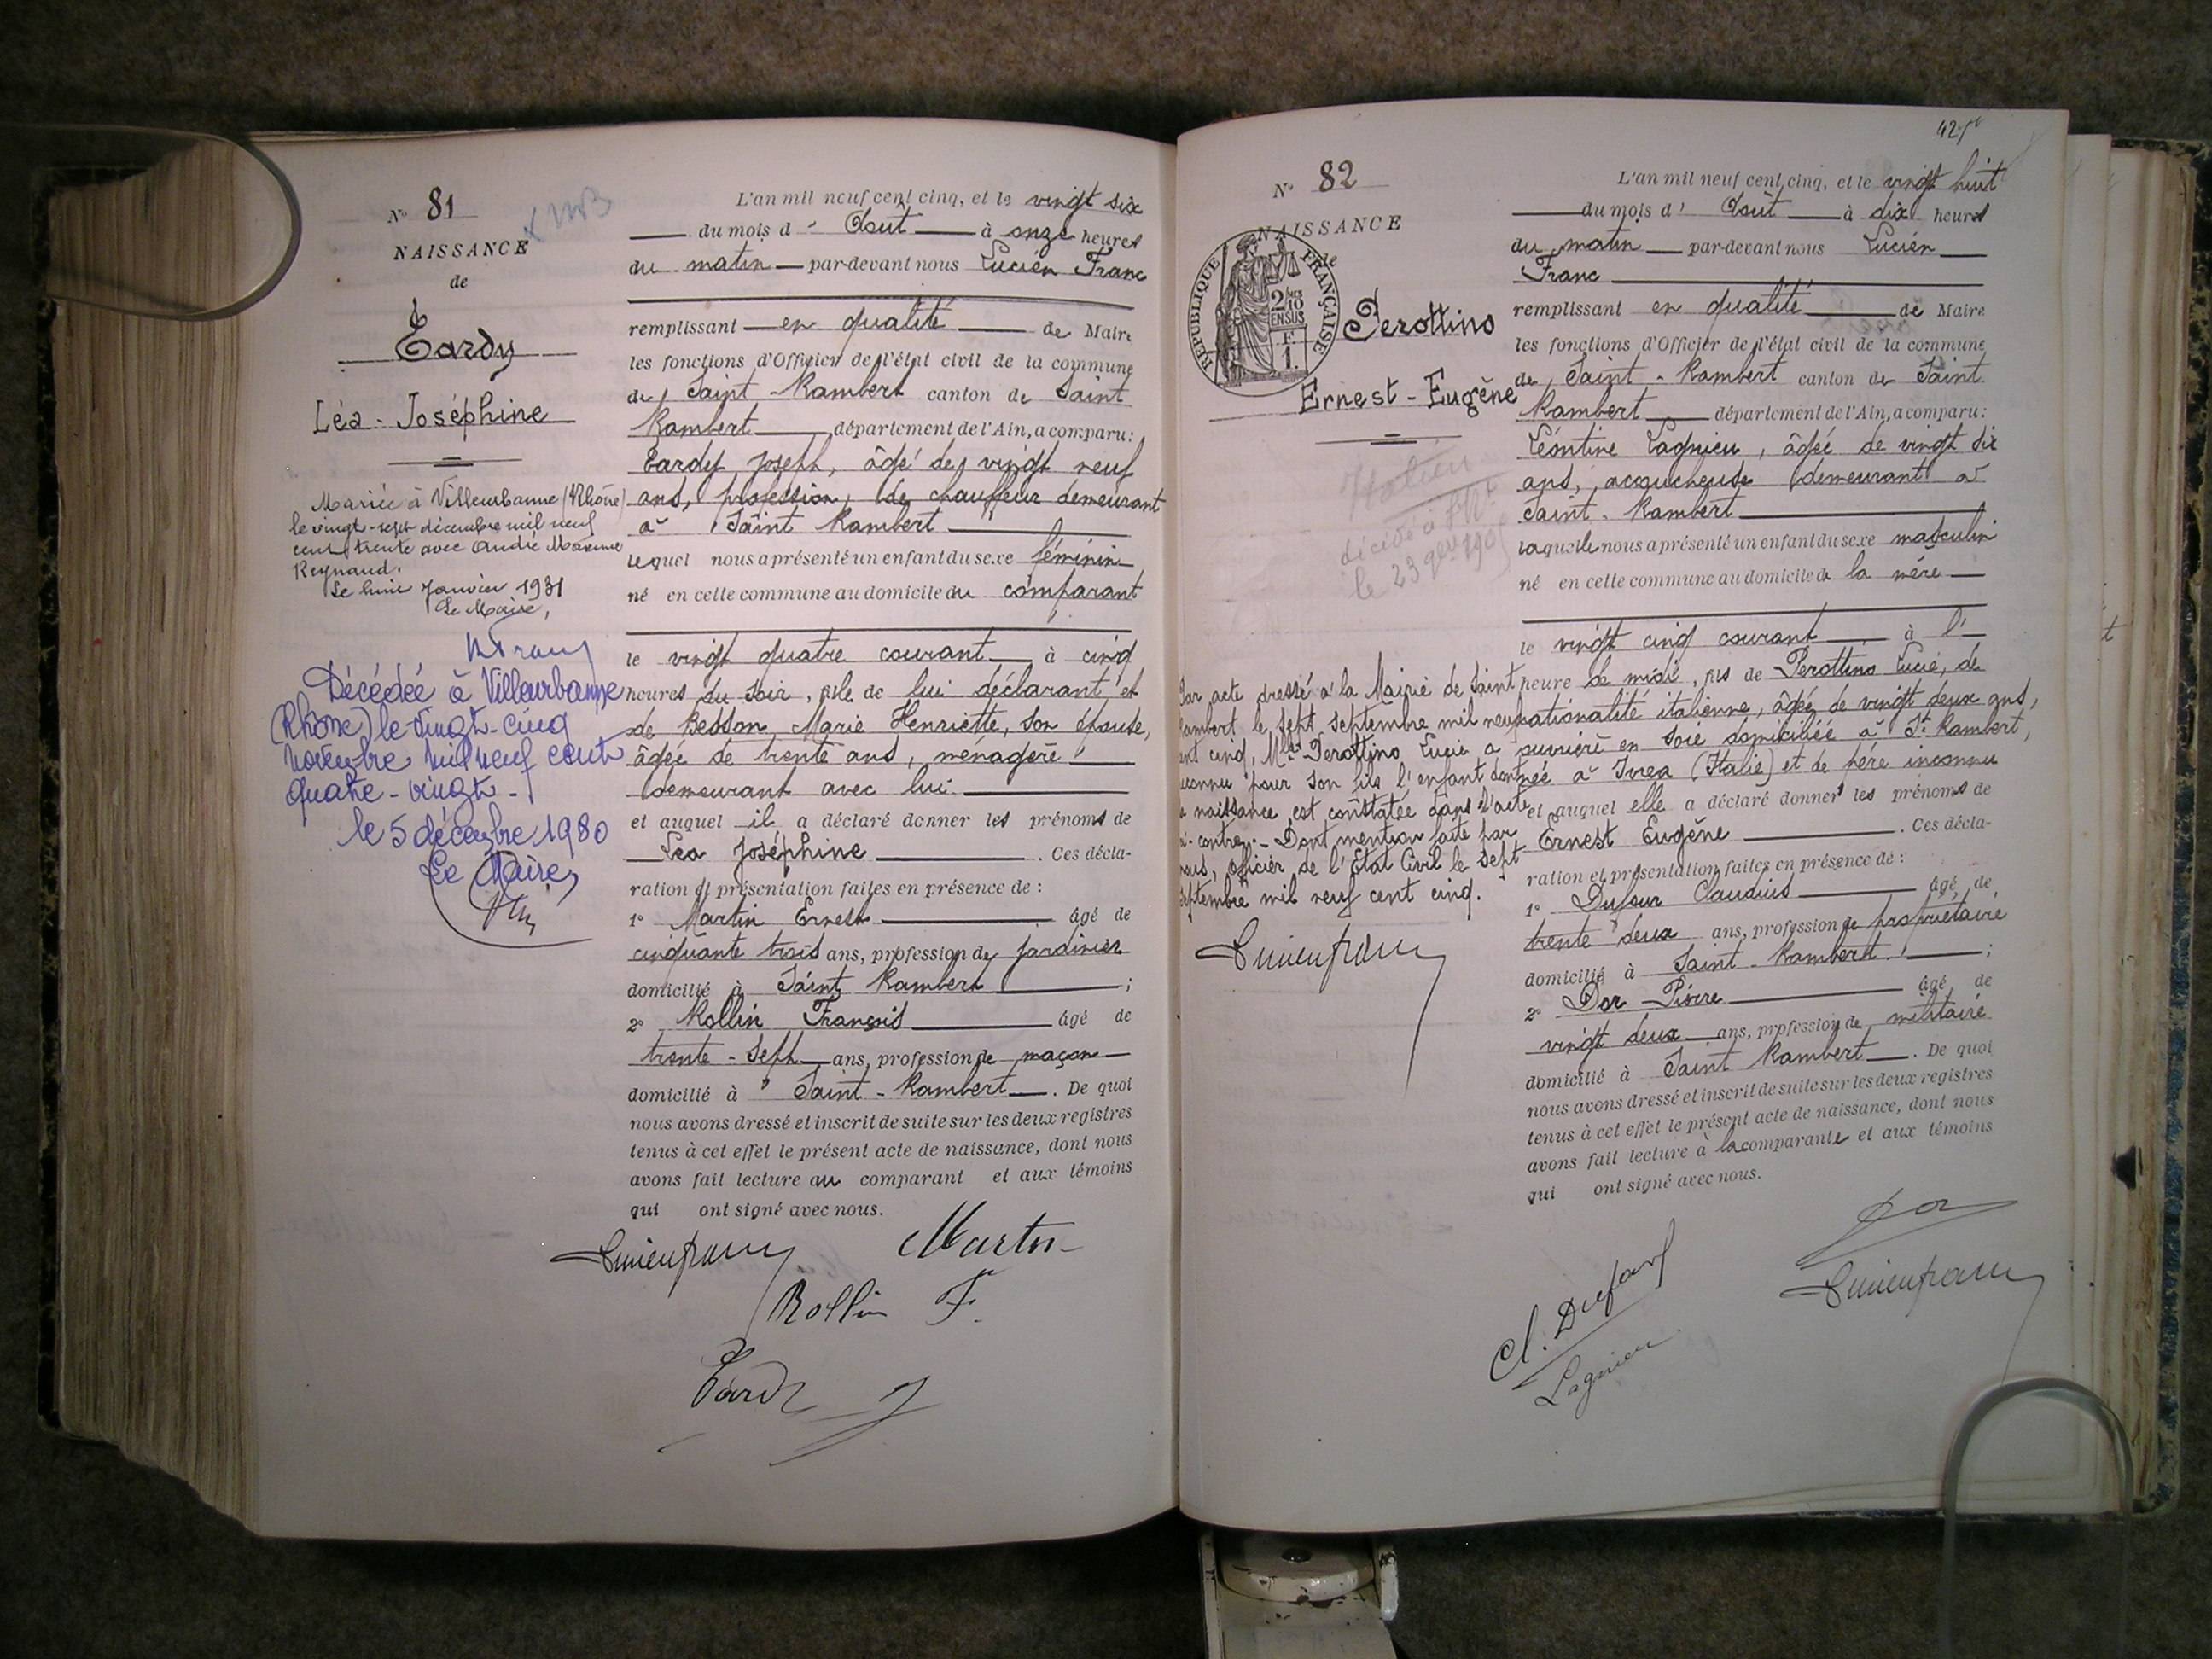 N° 81
NAISSANCE
de
Tardy
Léa-Joséphine
Mariée à Villeurbanne (Rhône)
le vingt-sept décembre mil neuf
cent trente avec André Maxime
Reynaud.
Le huit Janvier 1931
Le Maire,
Décédée à Villeurbanne
(Rhône) le vingt-cinq
novembre mil neuf cent
quatre-vingt-
le 5 décembre 1980
Le Maire,
L'an mil neuf cent cinq, et le vingt six
du mois d' Août à onze heures
du matin par-devant nous Lucien Franc
remplissant en qualité de Maire
les fonctions d'Officier de l'état civil de la commune
de Saint-Rambert canton de Saint
Rambert département de l'Ain, a comparu:
Tardy Joseph, âgé de vingt neuf
ans, profession de chauffeur demeurant
à Saint Rambert
lequel nous a présenté un enfant du sexe féminin
né en cette commune au domicile du comparant
le vingt quatre courant à cinq
heures du soir, fille de lui déclarant et
de Besson Marie Henriette, son épouse,
âgée de trente ans, ménagère
demeurant avec lui
et auquel il a déclaré donner les prénoms de
Léa Joséphine . Ces décla-
ration et présentation faites en présence de :
1° Martin Ernest âgé de
cinquante trois ans, profession de jardinier
domicilié à Saint Rambert ;
2° Rollin François âgé de
trente-sept ans, profession de maçon
domicilié à Saint-Rambert . De quoi
nous avons dressé et inscrit de suite sur les deux registres
tenus à cet effet le présent acte de naissance, dont nous
avons fait lecture au comparant et aux témoins
qui ont signé avec nous.
Lucien franc Martin
Rollin F.
Tardy J
N° 82
NAISSANCE
de
REPUBLIQUE FRANÇAISE
2/10
EN SUS
F.
1.
Perottino
Ernest-Eugène
Italien
décédé à St Rt
le 23 9bre 1905
Par acte dressé à la Mairie de Saint
Rambert le sept septembre mil neuf
cent cinq, Mlle Perottino Lucie a
reconnu pour son fils l'enfant dont
la naissance est constatée dans l'acte
ci-contre.- Dont mention faite par
nous, officier de l'Etat Civil le sept
septembre mil neuf cent cinq.
Lucien franc
L'an mil neuf cent cinq, et le vingt huit
du mois d' Août à dix heures
du matin par-devant nous Lucien
Franc
remplissant en qualité de Maire
les fonctions d'Officier de l'état civil de la commune
de Saint-Rambert canton de Saint
Rambert département de l'Ain, a comparu:
Léontine Lagnieu, âgée de vingt six
ans, accoucheuse demeurant à
Saint-Rambert
laquelle nous a présenté un enfant du sexe masculin
né en cette commune au domicile de la mère
le vingt cinq courant à l'
heure de midi, fils de Perottino Lucie, de
nationalité italienne, âgée de vingt deux ans,
ouvrière en soie domiciliée à St Rambert,
née à Ivrea (Italie) et de père inconnu
et auquel elle a déclaré donner les prénoms de
Ernest Eugène . Ces décla-
ration et présentation faites en présence de :
1° Dufour Claudius âgé de
trente deux ans, profession de propriétaire
domicilié à Saint-Rambert ;
2° Dor Pierre âgé de
vingt deux ans, profession de militaire
domicilié à Saint Rambert . De quoi
nous avons dressé et inscrit de suite sur les deux registres
tenus à cet effet le présent acte de naissance, dont nous
avons fait lecture à la comparante et aux témoins
qui ont signé avec nous.
Dor
Cl. Dufour
Lucien franc
Lagnieu